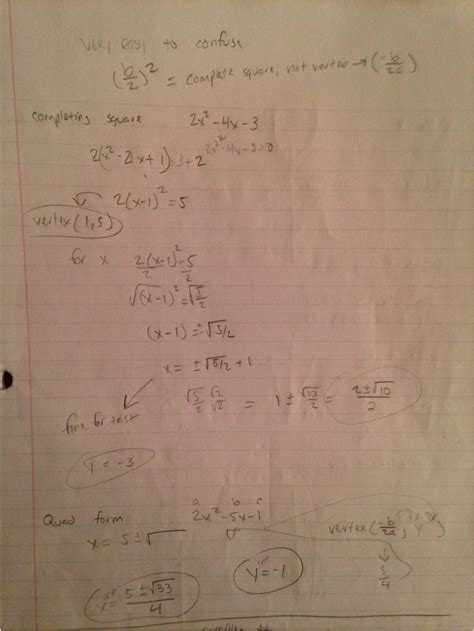 very easy to confuse
(b/2)² = complete square, not vertex → (-b/2a)
completing square 2x²-4x-3
2x²-4x-3=0
2(x²-2x+1)=3+2
2(x-1)²=5
vertex (1,5)
for x 2(x-1)²=5
2 2
√(x-1)²=√5/2
(x-1)=±√5/2
x= ±√5/2 +1
√5/2 √2/√2 = 1±√10/2 = 2±√10/2
fine for test
Y=-3
a b c
Quad form 2x²-5x-1
x= 5±√
vertex (-b/2a, Y)
5/4
int
Y=-1
x= 5±√33/4